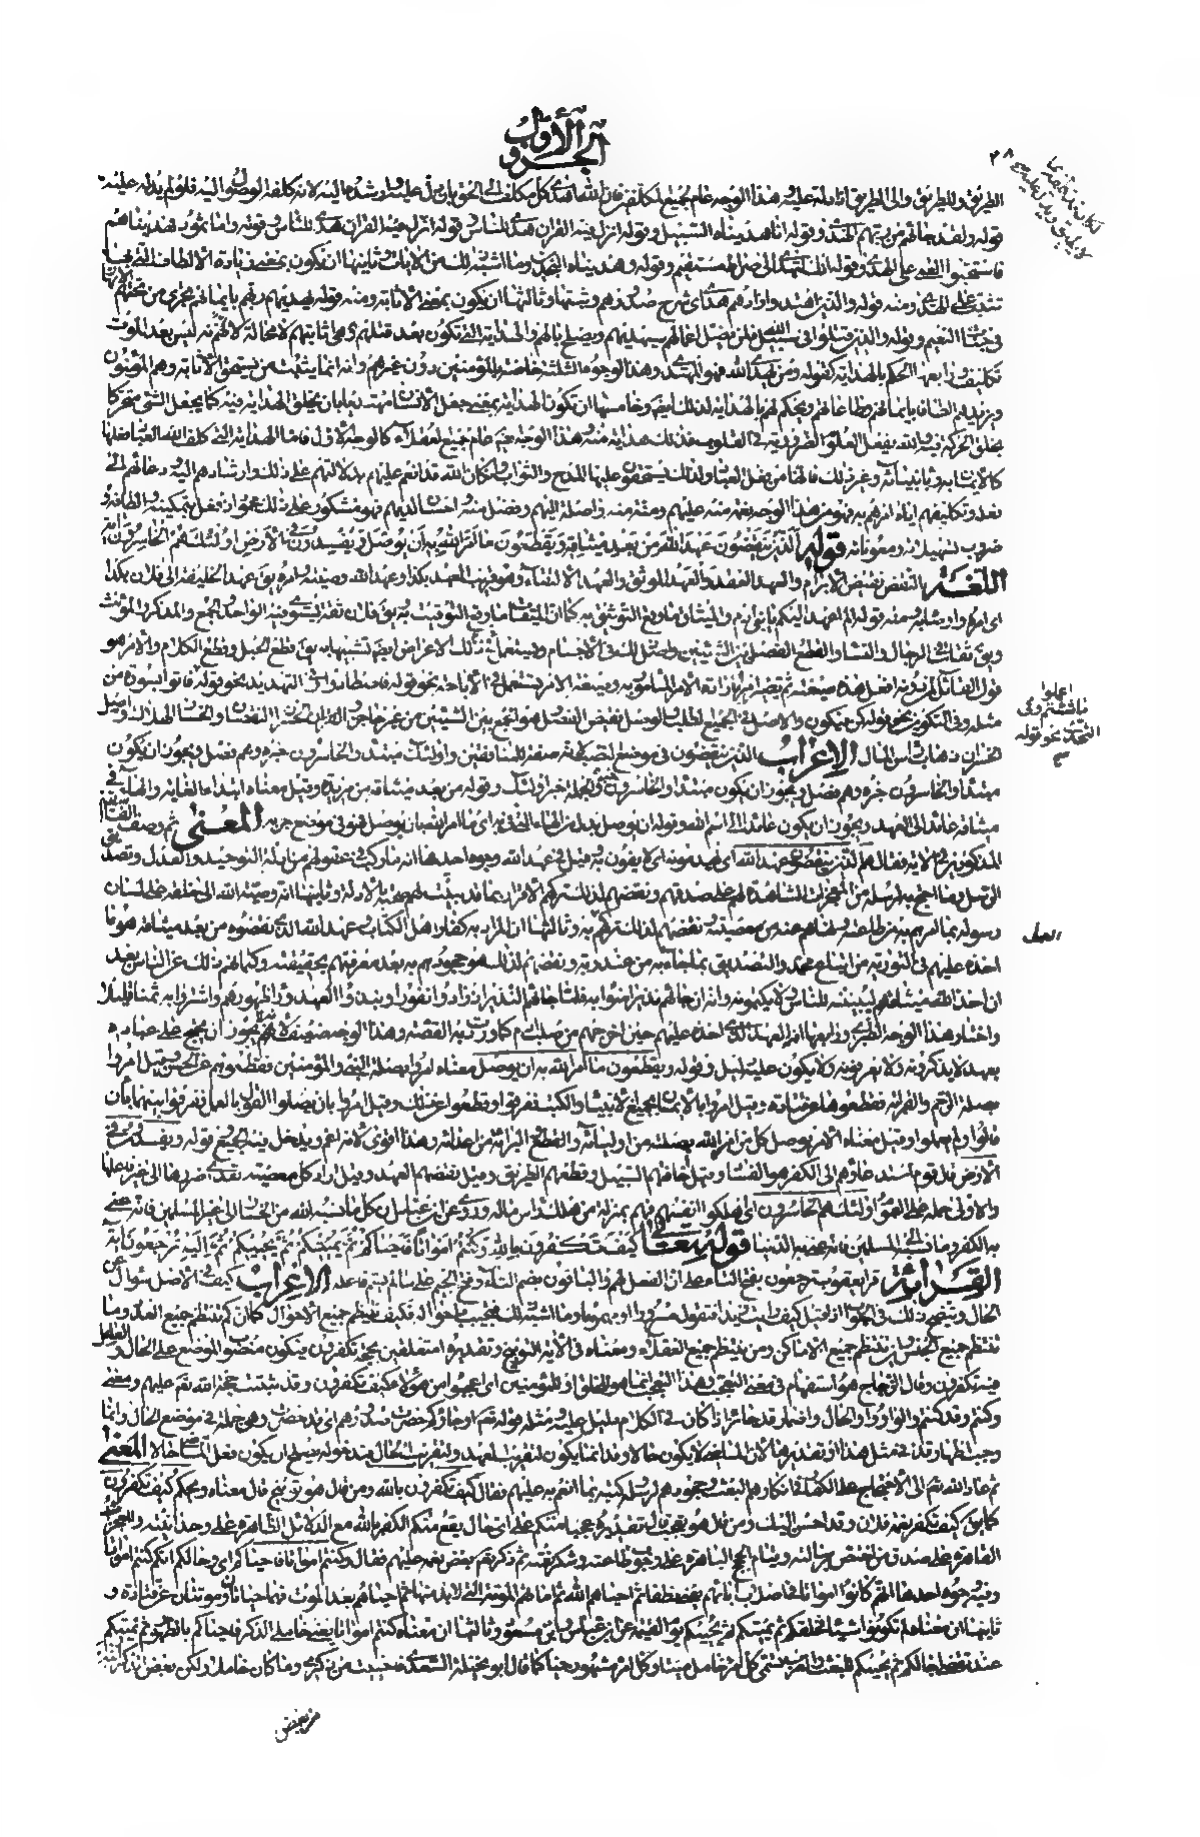 الجزو الأول
٢٨
الطريق وللطريق والى الطريق اذا دله عليه وهذا الوجه عام لجميع المكلفين فان الله تعالى هدى كل مكلف الى الحق بان دل عليه وارشده اليه لانه كلفه الوصول اليه فلو لم يدله عليه
قوله ولقد جاءهم من ربهم الهدى وقوله انا هديناه السبيل وقوله انزل فيه القران هدى للناس وقوله واما ثمود فهديناهم
فاستحبوا العمى على الهدى وقوله انك لتهدى الى صراط مستقيم وقوله وهديناه النجدين وما اشبه ذلك من الايات وثانيها ان يكون بمعنى زيادة الالطاف التى بها
يثبت على الهدى ومنه قوله والذين اهتدوا زادهم هدى اى شرح صدورهم وثبتها وثالثها ان يكون بمعنى الاثابة ومنه قوله يهديهم ربهم بايمانهم تجرى من تحتهم الانهار
فى جنات النعيم وقوله والذين قتلوا فى سبيل الله فلن يضل اعمالهم سيهديهم ويصلح بالهم والهداية التى تكون بعد قتلهم هى اثابتهم لا محالة لانه ليس بعد الموت
تكليف ورابعها الحكم بالهداية كقوله ومن يهدى الله فهو المهتدى وهذه الوجوه الثلثة خاصة بالمؤمنين دون غيرهم لانه انما يثيب من يستحق الاثابة وهم المؤمنون
ويزيدهم الطافا بايمانهم وطاعاتهم ويحكم لهم بالهداية لذلك ايضا وخامسها ان تكون الهداية بمعنى جعل الانسان مهتديا بان يخلق الهداية فيه كما يجعل الشئ متحركا
بخلق الحركة فيه والله يفعل العلوم الضرورية فى القلوب فذلك هداية منه وهذا الوجه ايضا عام لجميع العقلاء كالوجه الاول فاما الهداية التى كلف الله العباد فعلها
كالايمان به وبانبيائه وغير ذلك فانها من فعل العباد ولذلك يستحقون عليها المدح والثواب وان كان الله قد انعم عليهم بدلالتهم على ذلك وارشادهم اليه ودعائهم الى
فعله وتكليفهم اياه وامرهم به فهو من هذا الوجه نعمة منه عليهم ومنة منه واصلة اليهم وفضل منه واحسان لديهم فهو مشكور على ذلك محمود اذ فعل بتمكينه والطافه و
ضروب تسهيلاته ومعوناته قوله الذين ينقضون عهد الله من بعد ميثاقه ويقطعون ما امر الله به ان يوصل ويفسدون فى الارض اولئك هم الخاسرون اية
اللغة النقض نقيض الابرام والعهد العقد والعهد الموثق والعهد الالتقاء وهو قريب العهد بكذا وعهد الله وصيته وامره يق عهد الخليفة الى فلان بكذا
اى امره واوصاه به ومنه قوله الم اعهد اليكم يا بنى ادم والميثاق ما وقع التوثيق به كما ان الميقات ما وقع التوقيت به يق فلان ثقة يستوى فيه الواحد والجمع والمذكر والمؤنث
ويق ثقات فى الرجال والنساء والقطع الفصل بين الشيئين واصل ذلك فى الاجسام ويستعمل ذلك فى الاعراض ايضا تشبيها به يق قطع الحبل وقطع الكلام والامر هو
قول القائل لمن دونه افعل
مثله وفى التكوين نحو قوله كن فيكون والاصل فى الجميع الطلب والوصل نقيض الفصل وهو الجمع بين الشيئين من غير حاجز
الخسران ذهاب راس المال الاعراب الذين ينقضون فى موضع النصب لانه صفة للفاسقين واولئك مبتدا والخاسرون خبره وهم فصل ويجوز ان يكون
مبتدا والخاسرون خبره وهم فصل ويجوز ان يكون هم مبتدا والخاسرون خبره والجملة خبر اولئك وقوله من بعد ميثاقه من مزيدة وقيل معناه ابتداء الغاية والهاء فى
ميثاقه عائد الى العهد ويجوز ان يكون عائدا الى اسم الله وقوله ان يوصل بدل من الهاء التى فى به اى ما امر الله بان يوصل فهو فى موضع جر به المعنى ثم وصف الله الفاسقين
المذكورين فى الاية فقال هم الذين ينقضون عهد الله اى يهدمونه اى لا يفون به وقيل فى عهد الله وجوه احدها انه ما ركب فى عقولهم من ادلة التوحيد والعدل وتصديق
الرسل وما احتج به لرسله من المعجزات الشاهدة لهم على صدقهم ونقضهم لذلك تركهم الاقرار بما قد بينت لهم صحته بالادلة وثانيها انه وصية الله الى خلقه على لسان
رسوله بما امرهم به من طاعته ونهاهم عنه من معصيته ونقضهم لذلك تركهم العمل به وثالثها ان المراد به كفار اهل الكتاب وعهد الله الذى نقضوه من بعد ميثاقه هو ما
اخذه عليهم فى التورية من اتباع محمد والتصديق بما جاء به من عند ربه ونقضهم لذلك هو جحودهم به بعد معرفتهم بحقيقته وكتمانهم ذلك عن الناس بعد
ان اخذ الله ميثاقهم ليبيننه للناس ولا يكتمونه وانهم ان جاءهم نذير امنوا به فلما جاءهم النذير ازدادوا نفورا ونبذوا العهد وراء ظهورهم واشتروا به ثمنا قليلا
واختار هذا الوجه الطبرى ورابعها انه العهد الذى اخذه عليهم حين اخرجهم من صلب ادم كما وردت به القصة وهذا الوجه ضعيف لانه لا يجوز ان يحتج على عباده
بعهد لا يذكرونه ولا يعرفونه ولا يكون عليه دليل وقوله ويقطعون ما امر الله به ان يوصل معناه امروا بصلة النبى والمؤمنين فقطعوهم عن الحسن وقيل امروا
بصلة الرحم والقرابة فقطعوها عن قتادة وقيل امروا بالايمان بجميع الانبياء والكتب ففرقوا وقطعوا ذلك وقيل امروا بان يصلوا القول بالعمل ففرقوا بينهما بان
قالوا ولم يعملوا وقيل معناه الامر بوصل كل من امر الله بصلته من اوليائه والقطع البراءة من اعدائه وهذا اقوى لانه اعم ويدخل فيه الجميع قوله ويفسدون فى
الارض قال قوم استدعاؤهم الى الكفر هو الفساد وقيل اخافتهم السبيل وقطعهم الطريق وقيل نقضهم العهد وقيل اراد كل معصية تعدى ضررها الى غير فاعلها
والاولى حمله على العموم اولئك هم الخاسرون اى اهلكوا انفسهم فهم بمنزلة من هلك راس ماله وروى عن ابن عباس ان كل ما نسبه الله من الخسار الى غير المسلمين فانما عنى
به الكفر وما نسبه الى المسلمين فانما عنى به الدنيا قوله تعالى كيف تكفرون بالله وكنتم امواتا فاحياكم ثم يميتكم ثم يحييكم ثم اليه ترجعون اية
القراءة قرا يعقوب ترجعون بفتح التاء على ان الفعل لهم والباقون بضم التاء وفتح الجيم على ما لم يسم فاعله الاعراب كيف فى الاصل سؤال عن
الحال
تنتظم جميع الجنس واين تنتظم جميع الاماكن ومن ينتظم جميع العقلاء ومعناه فى الاية التوبيخ وتقديره امتعلقين بحجة تكفرون فيكون منصوب الموضع على الحال والعامل
فيه تكفرون وقال الزجاج هو استفهام فى معنى التعجب وهذا التعجب انما هو للخلق او للمؤمنين اى اعجبوا من هؤلاء كيف تكفرون وقد ثبتت حجة الله تعم عليهم ومعنى
وكنتم وقد كنتم والواو واو الحال واضمار قد جائز اذا كان فى الكلام دليل عليه ومثله قوله تعم او جاؤكم حصرت صدورهم اى قد حصرت وهى جملة فى موضع الحال وانما
وجب اظهار قد فى مثل هذا او تقديرها لان الماضى لا يكون حالا وقد انما يكون لتقريب العهد ولتقريب الحال فبدخوله يصلح ان يكون فعل الماضى حالا المعنى
ثم عاد الله تعم الى الاحتجاج على الكفار فى انكارهم البعث وجحودهم لرسله وكتبه بما انعم به عليهم فقال كيف تكفرون بالله ومن قال هو توبيخ قال معناه ويحكم كيف تكفرون
كما يق كيف تكفر نعمة فلان وقد احسن اليك ومن قال هو تعجب قال تقديره عجبا منكم على اى حال يقع منكم الكفر بالله مع الدلائل الظاهرة على وحدانيته والمعجزات
القاهرة على صدق من اختصه برسالته وقيام الحجج الباهرة على وجوب طاعته وشكر نعمته ثم ذكر تعم بعض نعمه عليهم فقال وكنتم امواتا فاحياكم اى وحالكم انكم كنتم امواتا
وفيه وجوه احدها انهم كانوا امواتا فى اصلاب ابائهم يعنى نطفا فاحياهم الله ثم اماتهم الموتة التى لا بد منها ثم احياهم بعد الموت فهما حياتان وموتتان عن قتادة و
ثانيها ان معناه لم تكونوا شيئا فخلقكم ثم يميتكم ثم يحييكم يوم القيمة عن ابن عباس وابن مسعود وثالثها ان معناه كنتم امواتا يعنى خاملى الذكر فاحياكم بالظهور ثم يميتكم
عند تقضى اجالكم ثم يحييكم للبعث والعرب تسمى كل امر خامل ميتا وكل امر مشهور حيا كما قال ابو نخيلة السعدى فاحييت من ذكرى وما كان خاملا ولكن بعض الذكر انبه
من بعض